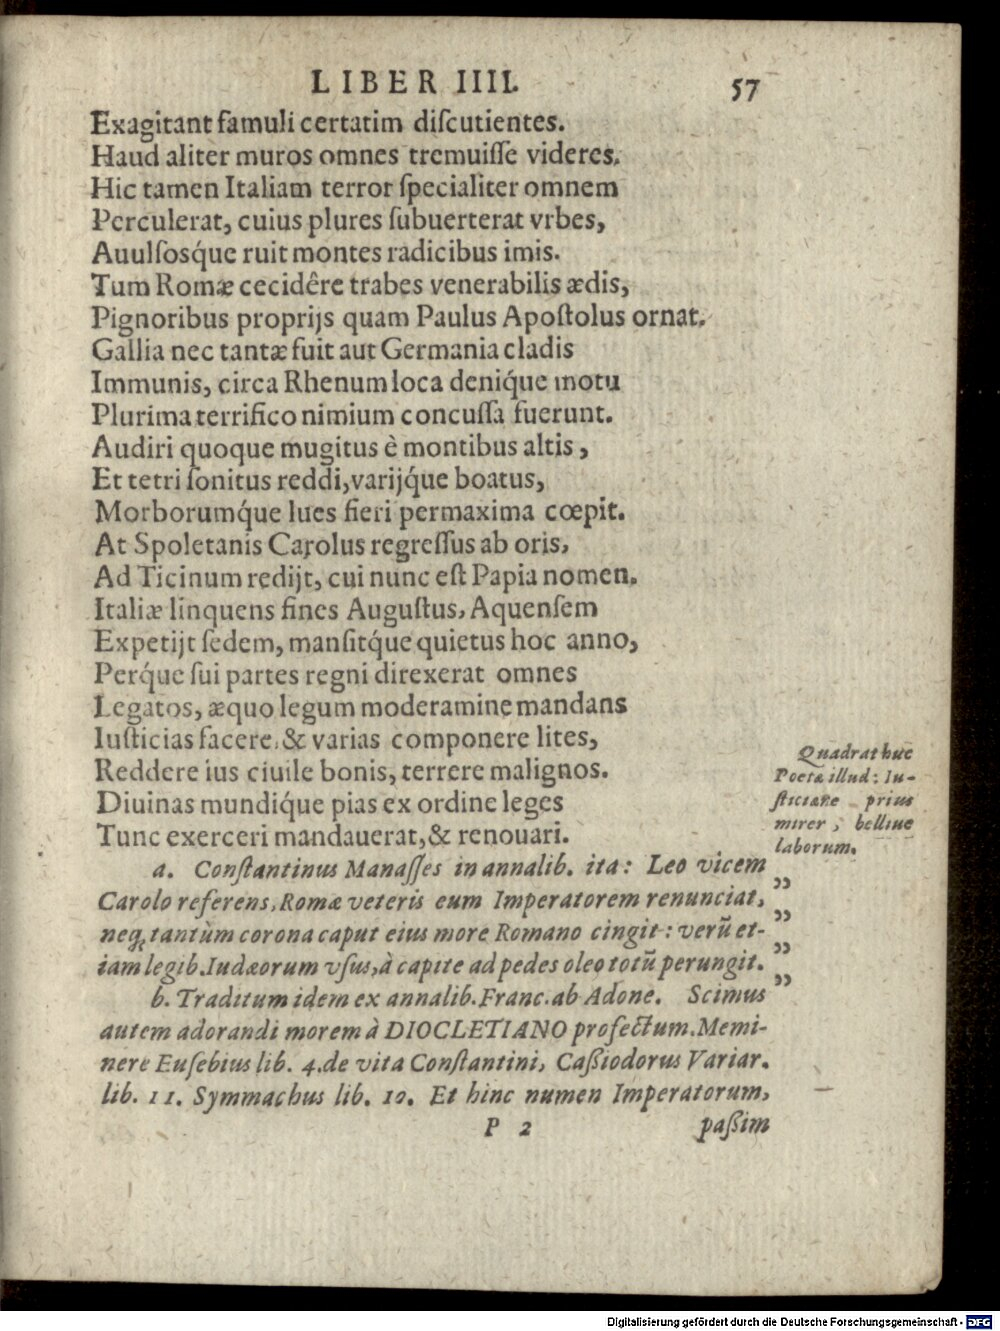 LIBER IIII. 57
Exagitant famuli certatim diſcutientes.
Haud aliter muros omnes tremuiſſe videres.
Hic tamen Italiam terror ſpecialiter omnem
Perculerat, cuius plures ſubuerterat vrbes,
Auulſosq́ue ruit montes radicibus imis.
Tum Romæ cecidêre trabes venerabilis ædis,
Pignoribus proprijs quam Paulus Apoſtolus ornat.
Gallia nec tantæ fuit aut Germania cladis
Immunis, circa Rhenum loca deniq́ue motu
Plurima terrifico nimium concuſſa fuerunt.
Audiri quoque mugitus è montibus altis,
Et tetri ſonitus reddi, varijq́ue boatus,
Morborumq́ue lues fieri permaxima cœpit.
At Spoletanis Carolus regreſſus ab oris,
Ad Ticinum redijt, cui nunc eſt Papia nomen.
Italiæ linquens fines Auguſtus, Aquenſem
Expetijt ſedem, manſitq́ue quietus hoc anno,
Perq́ue ſui partes regni direxerat omnes
Legatos, æquo legum moderamine mandans
Iuſticias facere, & varias componere lites,
Reddere ius ciuile bonis, terrere malignos.
Diuinas mundiq́ue pias ex ordine leges
Tunc exerceri mandauerat, & renouari.
Quadrat huc
Poetæ illud: Iu-
ſticiane prius
mirer, belliue
laborum.
a. Conſtantinus Manaſſes in annalib. ita: Leo vicem
Carolo referens, Romæ veteris eum Imperatorem renunciat, ”
neq; tantùm corona caput eius more Romano cingit: verũ et- ”
iam legib. Iudæorum vſus, à capite ad pedes oleo totũ perungit. ”
”
b. Traditum idem ex annalib. Franc. ab Adone. Scimus
autem adorandi morem à DIOCLETIANO profectum. Memi-
nere Euſebius lib. 4. de vita Conſtantini, Caßiodorus Variar.
lib. 11. Symmachus lib. 10. Et hinc numen Imperatorum,
P 2 paßim
Digitalisierung gefördert durch die Deutsche Forschungsgemeinschaft - DFG